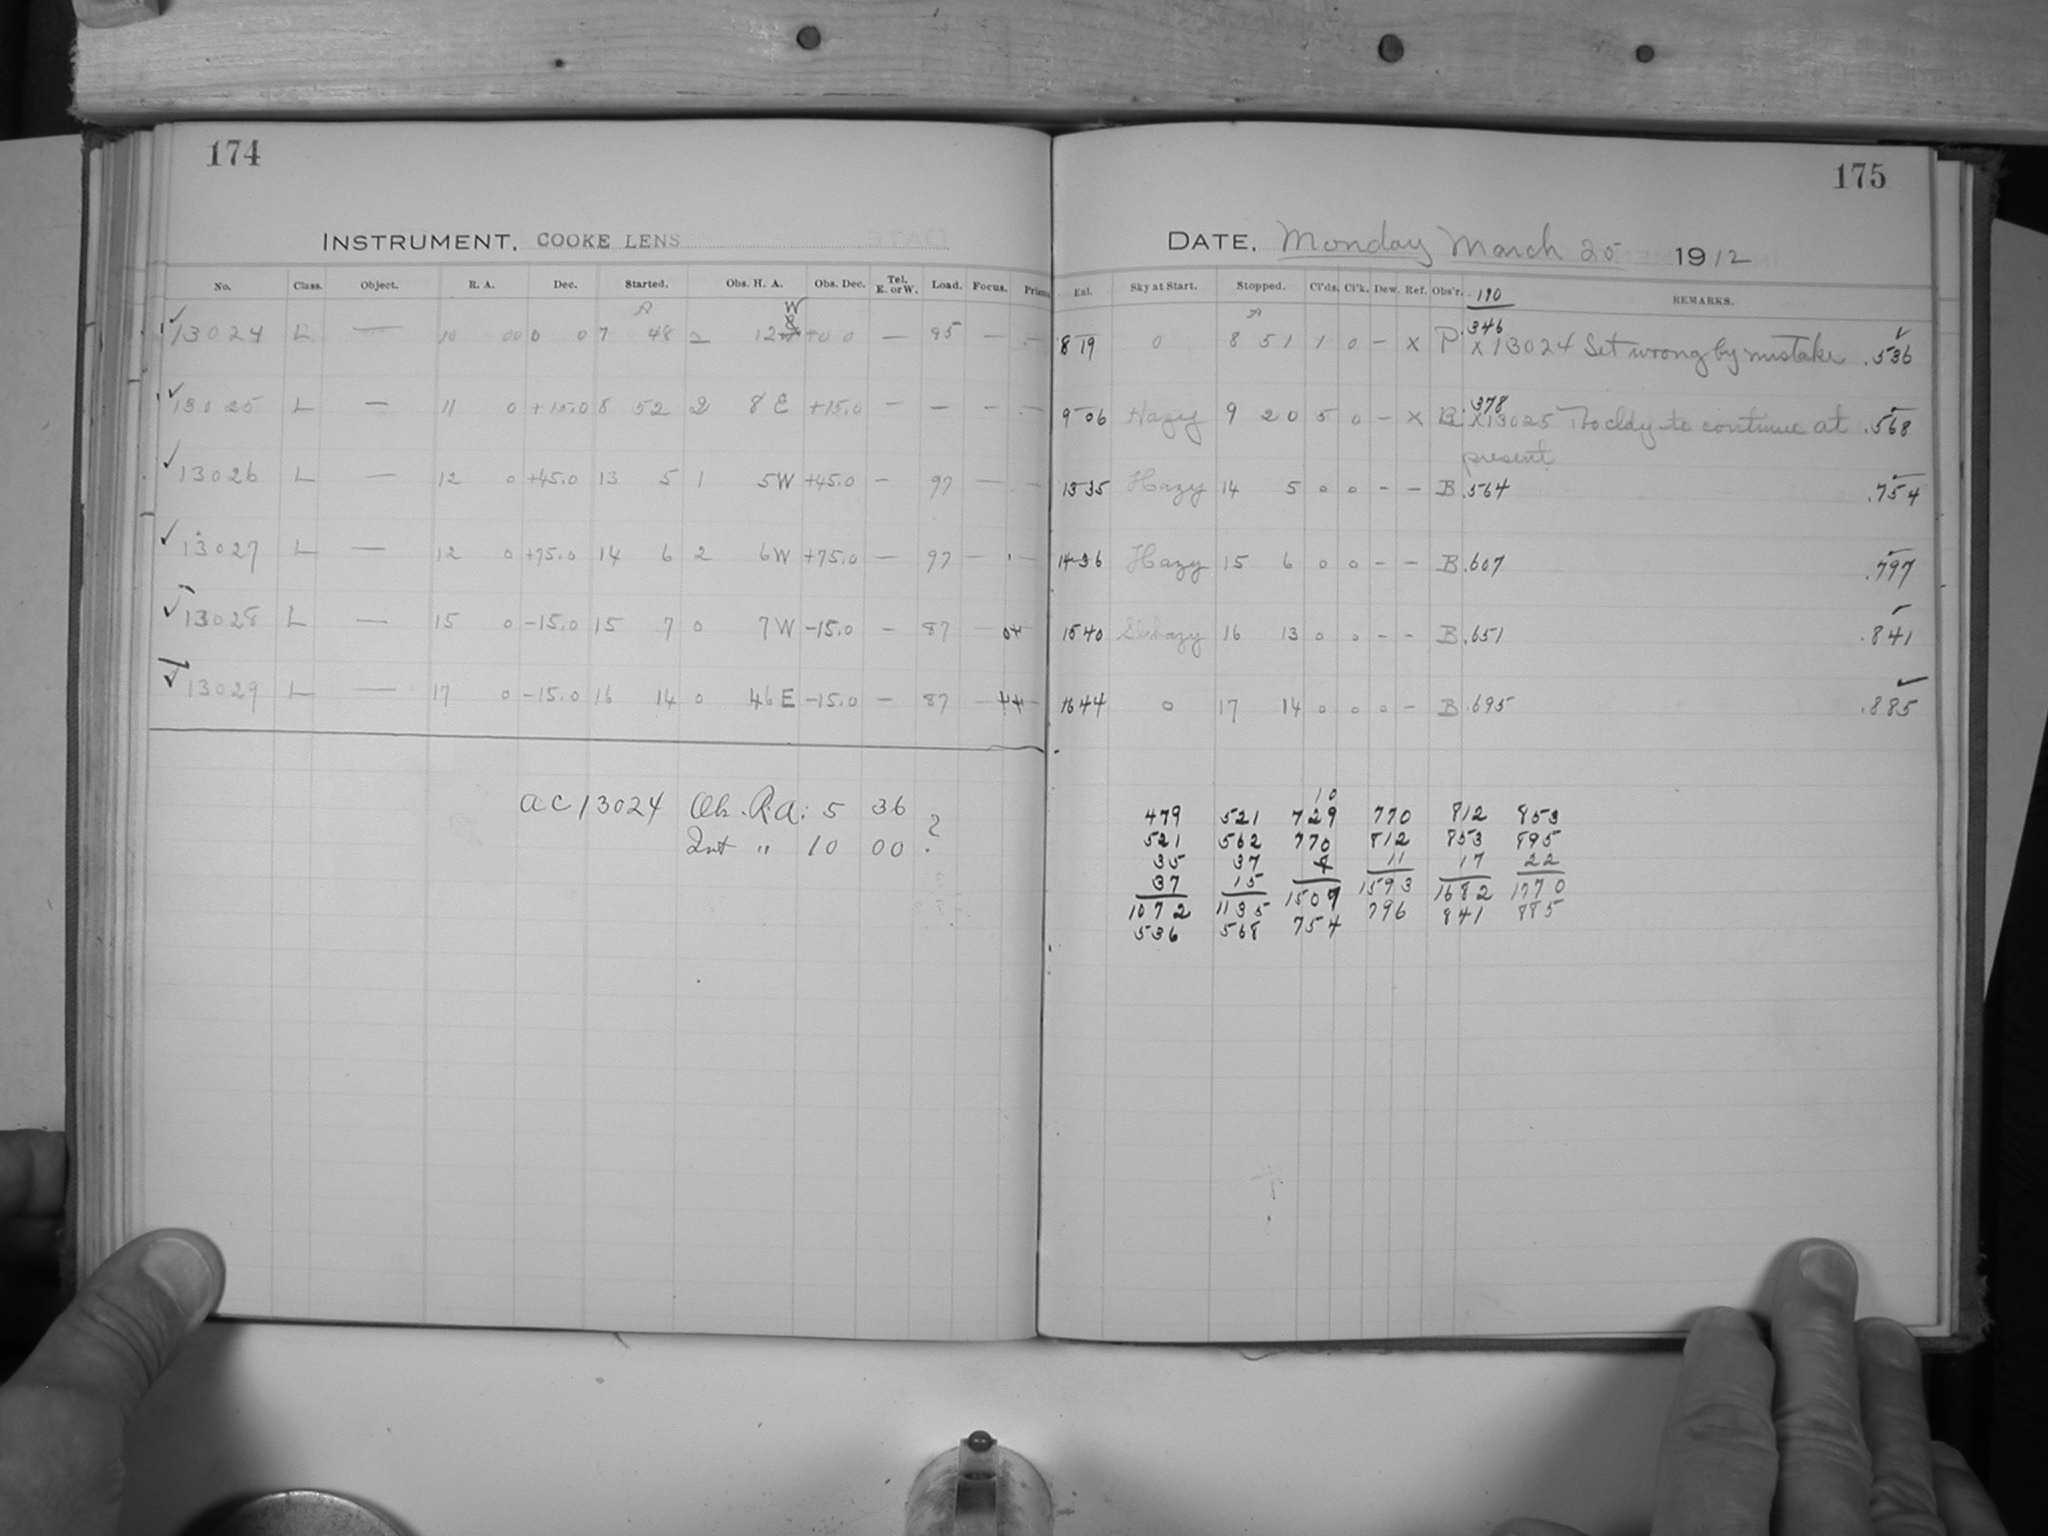 174
INSTRUMENT. COOKE LENS
No. Class. Object. R. A. Dec. Started. Obs. H. A. Obs. Dec. Tel. E. or W. Load. Focus. Prism
13024 L — 10 00 0 0 7 48 2 12 W +0 0 — 95 — —
13025 L — 11 0 +15.0 8 52 2 8 E +15.0 — — — —
13026 L — 12 0 +45.0 13 5 1 5W +45.0 — 97 — —
13027 L — 12 0 +75.0 14 6 2 6W +75.0 — 97 — —
13028 L — 15 0 -15.0 15 7 0 7W -15.0 — 87 —
13029 L — 17 0 -15.0 16 14 0 46 E -15.0 — 87 —
AC 13024 Ob. R.A: 5 36
Int " 10 00 ?
175
DATE. Monday March 25 1912
Exl. Sky at Start. Stopped. Cl'ds. Cl'k. Dew. Ref. Obs'r. 190 REMARKS.
8 19 0 8 51 1 0 — X P .346 X13024 Set wrong by mistake .536
9 06 Hazy 9 20 5 0 — X B .378 X13025 Too cldy to continue at present .568
13 35 Hazy 14 5 0 0 — — B .564 .754
14 36 Hazy 15 6 0 0 — — B .607 .797
15 40 Sl hazy 16 13 0 0 — — B .651 .841
16 44 0 17 14 0 0 0 — B .695 .885
10
479 521 729 770 812 853
521 562 770 812 853 895
35 37 11 17 22
37 15 1509 1593 1682 1770
1072 1135 754 796 841 885
536 568